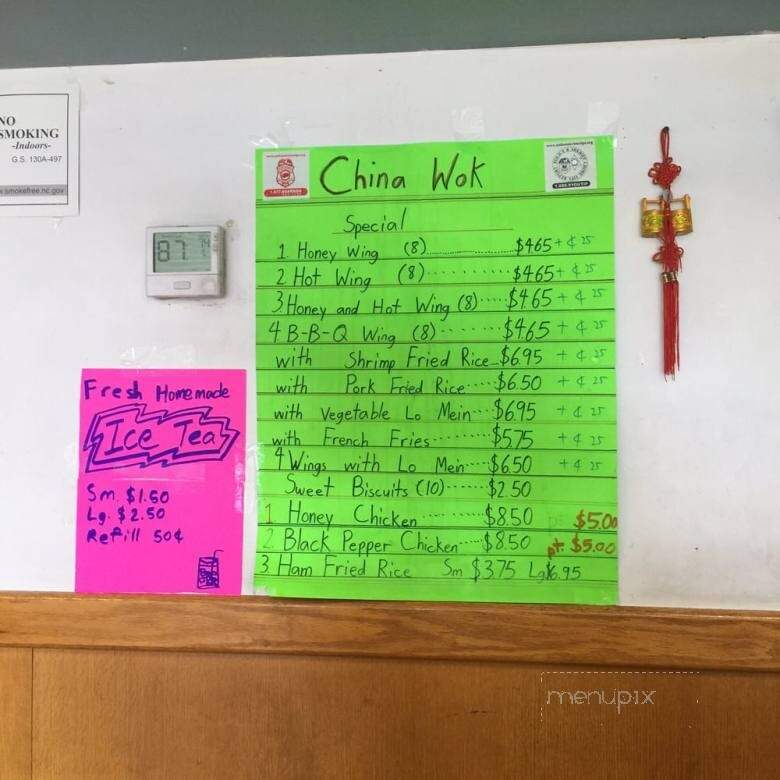 NO
SMOKING
-Indoors-
G.S. 130A-497
smokefree.nc.gov
87
74
China Wok
Special
1. Honey Wing (8) $4.65 + ¢ 25
2 Hot Wing (8) $4.65 + ¢ 25
3. Honey and Hot Wing (8) $4.65 + ¢ 25
4 B-B-Q Wing (8) $4.65 + ¢ 25
with Shrimp Fried Rice $6.95 + ¢ 25
with Pork Fried Rice $6.50 + ¢ 25
with Vegetable Lo Mein $6.95 + ¢ 25
with French Fries $5.75 + ¢ 25
4 Wings with Lo Mein $6.50 + ¢ 25
Sweet Biscuits (10) $2.50
1 Honey Chicken $8.50 pt. $5.00
2. Black Pepper Chicken $8.50 pt. $5.00
3. Ham Fried Rice Sm $3.75 Lg $6.95
Fresh Homemade
Ice Tea
Sm. $1.50
Lg. $2.50
Refill 50¢
menupix